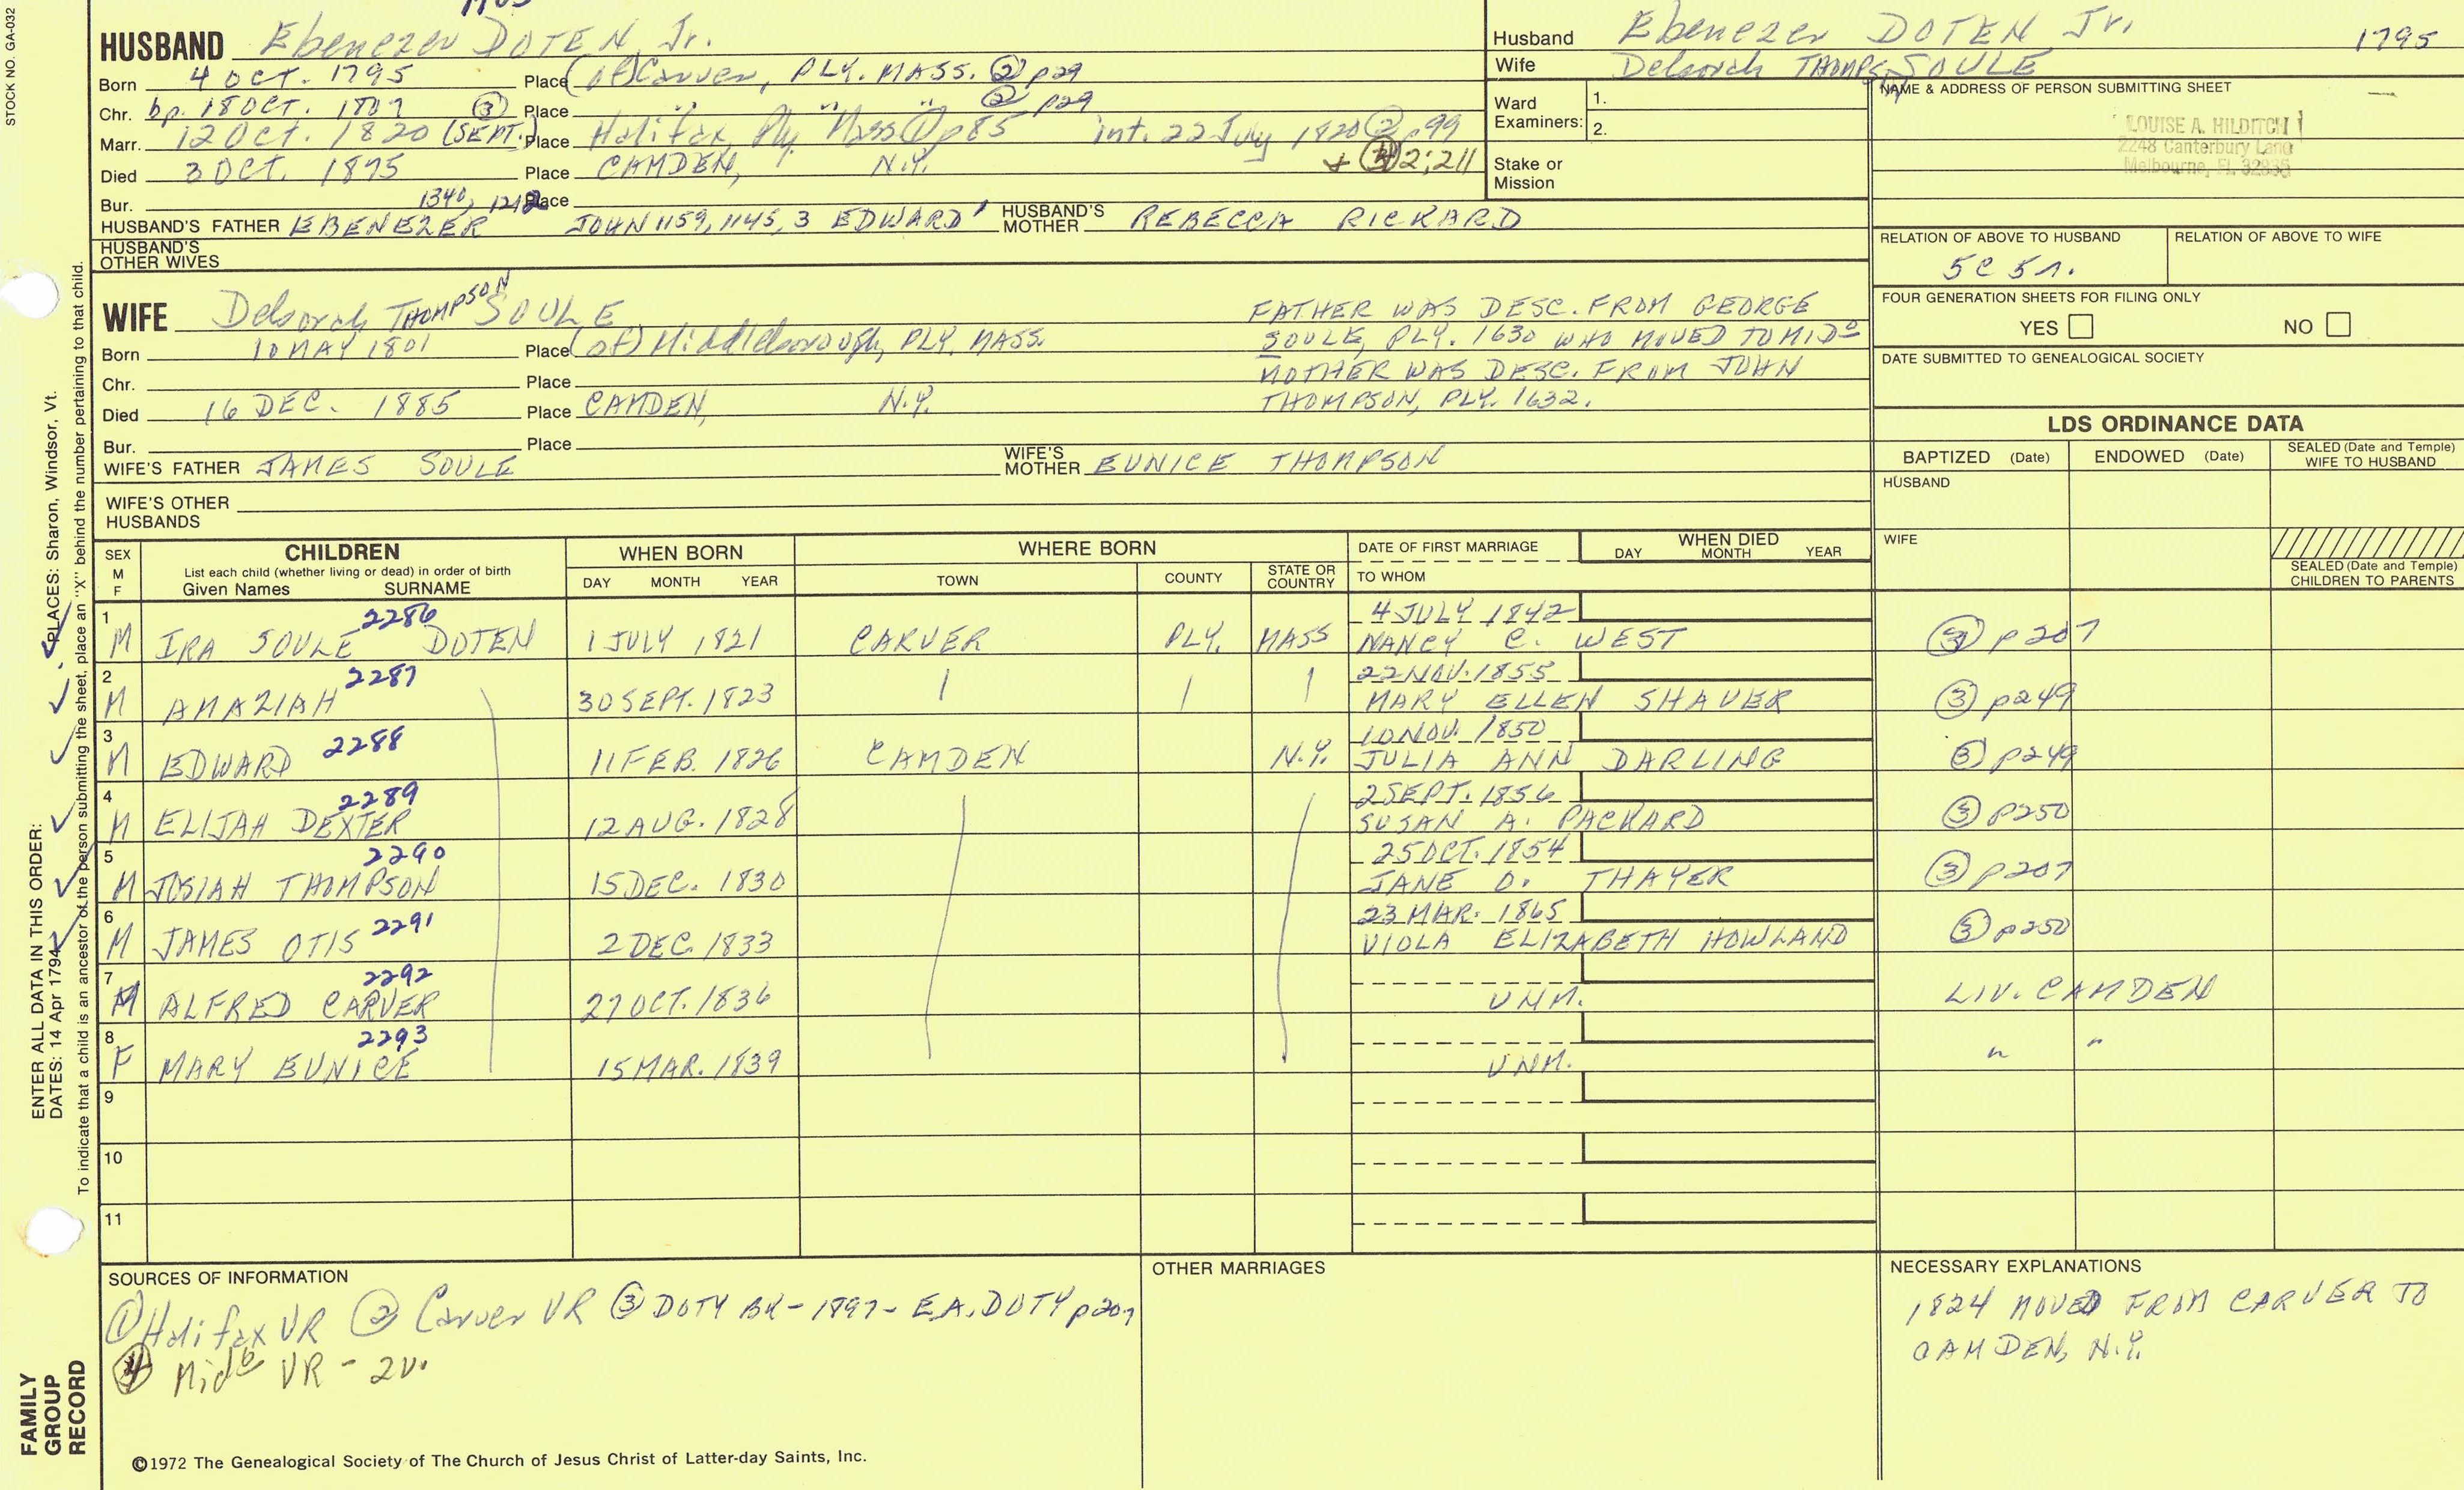 STOCK NO. GA-032
HUSBAND Ebenezer DOTEN, Jr.
Born 4 OCT. 1795 Place (of) Carver, PLY. MASS. ② p29
Chr. bp. 18 OCT. 1807 ③ Place " " " ② p29
Marr. 12 Oct. 1820 (SEPT.) Place Halifax, Ply. Mass ① p85 int. 22 July 1820 ② p99
Died 3 OCT. 1875 Place CAMDEN, N.Y. + ④ 2:211
Bur. 1340, Place
HUSBAND'S FATHER EBENEZER JOHN 1159, 1145, 3 EDWARD' HUSBAND'S MOTHER REBECCA RICKARD
HUSBAND'S OTHER WIVES
WIFE Deborah THOMPSON SOULE
Born 10 MAY 1801 Place (of) Middleborough, PLY. MASS.
Chr. Place
Died 16 DEC. 1885 Place CAMDEN, N.Y.
Bur. Place
FATHER WAS DESC. FROM GEORGE
SOULE, PLY. 1630 WHO MOVED TO MIDo
MOTHER WAS DESC. FROM JOHN
THOMPSON, PLY. 1632.
WIFE'S FATHER JAMES SOULE WIFE'S MOTHER EUNICE THOMPSON
WIFE'S OTHER HUSBANDS
Husband Ebenezer DOTEN Jr. 1795
Wife Deborah THOMPSON SOULE
Ward Examiners: 1.
2.
Stake or Mission
NAME & ADDRESS OF PERSON SUBMITTING SHEET
LOUISE A. HILDITCH
2248 Canterbury Lane
Melbourne, FL 32935
RELATION OF ABOVE TO HUSBAND RELATION OF ABOVE TO WIFE
5C 5r.
FOUR GENERATION SHEETS FOR FILING ONLY
YES NO
DATE SUBMITTED TO GENEALOGICAL SOCIETY
LDS ORDINANCE DATA
BAPTIZED (Date) ENDOWED (Date) SEALED (Date and Temple) WIFE TO HUSBAND
HUSBAND
WIFE
SEALED (Date and Temple) CHILDREN TO PARENTS
SEX M F CHILDREN List each child (whether living or dead) in order of birth Given Names SURNAME
WHEN BORN DAY MONTH YEAR
WHERE BORN TOWN COUNTY STATE OR COUNTRY
DATE OF FIRST MARRIAGE TO WHOM
WHEN DIED DAY MONTH YEAR
1 2286 4 JULY 1842
M IRA SOULE DOTEN 1 JULY 1821 CARVER PLY. MASS NANCY C. WEST ③ p207
2 2287 22 NOV. 1855
M AMAZIAH 30 SEPT. 1823 MARY ELLEN SHAVER ③ p249
3 2288 10 NOV. 1850
M EDWARD 11 FEB. 1826 CAMDEN N.Y. JULIA ANN DARLING ③ p249
4 2289 2 SEPT. 1856
M ELIJAH DEXTER 12 AUG. 1828 SUSAN A. PACKARD ③ p250
5 2290 25 OCT. 1854
M JOSIAH THOMPSON 15 DEC. 1830 JANE D. THAYER ③ p207
6 2291 23 MAR. 1865
M JAMES OTIS 2 DEC. 1833 VIOLA ELIZABETH HOWLAND ③ p250
7 2292
M ALFRED CARVER 27 OCT. 1836 UNM. LIV. CAMDEN
8 2293
F MARY EUNICE 15 MAR. 1839 UNM. " "
9
10
11
SOURCES OF INFORMATION
① Halifax VR ② Carver VR ③ DOTY BK - 1897 - E.A. DOTY p207
④ Midbo VR - 2v.
OTHER MARRIAGES
NECESSARY EXPLANATIONS
1824 MOVED FROM CARVER TO
CAMDEN, N.Y.
©1972 The Genealogical Society of The Church of Jesus Christ of Latter-day Saints, Inc.
ENTER ALL DATA IN THIS ORDER:
DATES: 14 Apr 1794
PLACES: Sharon, Windsor, Vt.
To indicate that a child is an ancestor of the person submitting the sheet, place an "X" behind the number pertaining to that child.
FAMILY
GROUP
RECORD